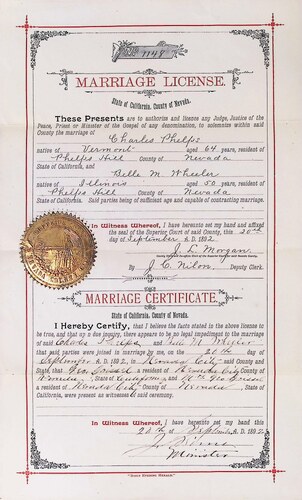 No. 1148
MARRIAGE LICENSE.
State of California, County of Nevada.
These Presents are to authorize and license any Judge, Justice of the
Peace, Priest or Minister of the Gospel of any denomination, to solemnize within said
County the marriage of
Charles Phelps
native of Vermont aged 64 years, resident of
Phelps Hill County of Nevada
State of California, and Belle M Wheeler
native of Illinois aged 50 years, resident of
Phelps Hill County of Nevada
State of California. Said parties being of sufficient age and capable of contracting marriage.
In Witness Whereof, I have hereunto set my hand and affixed
the seal of the Superior Court of said County, this 20th
day of September A. D. 1892
J. L. Morgan
County Clerk
By J. C. Nilon, Deputy Clerk.
MARRIAGE CERTIFICATE.
State of California, County of Nevada.
I Hereby Certify, that I believe the facts stated in the above license to
be true, and that upon due inquiry, there appears to be no legal impediment to the marriage
of said Charles Phelps and Belle M Wheeler
that said parties were joined in marriage by me, on the 20th day of
September A. D. 1892, in Nevada City said County and
State, that Geo a resident of Nevada City County of
Nevada, State of California and Mrs Geo
a resident of Nevada City County of Nevada, State of
California, were present as witnesses of said ceremony.
In Witness Whereof, I have hereunto set my hand this
20th day of September A. D. 1892
J.
Minister